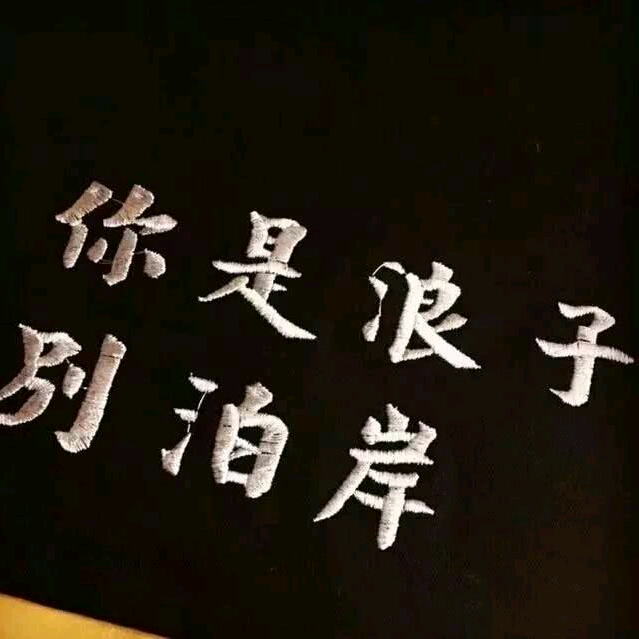 你是浪子
别泊岸